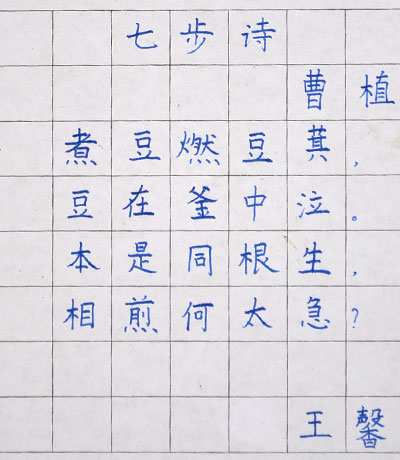 七步诗
曹植
煮豆燃豆萁,
豆在釜中泣。
本是同根生,
相煎何太急?
王馨